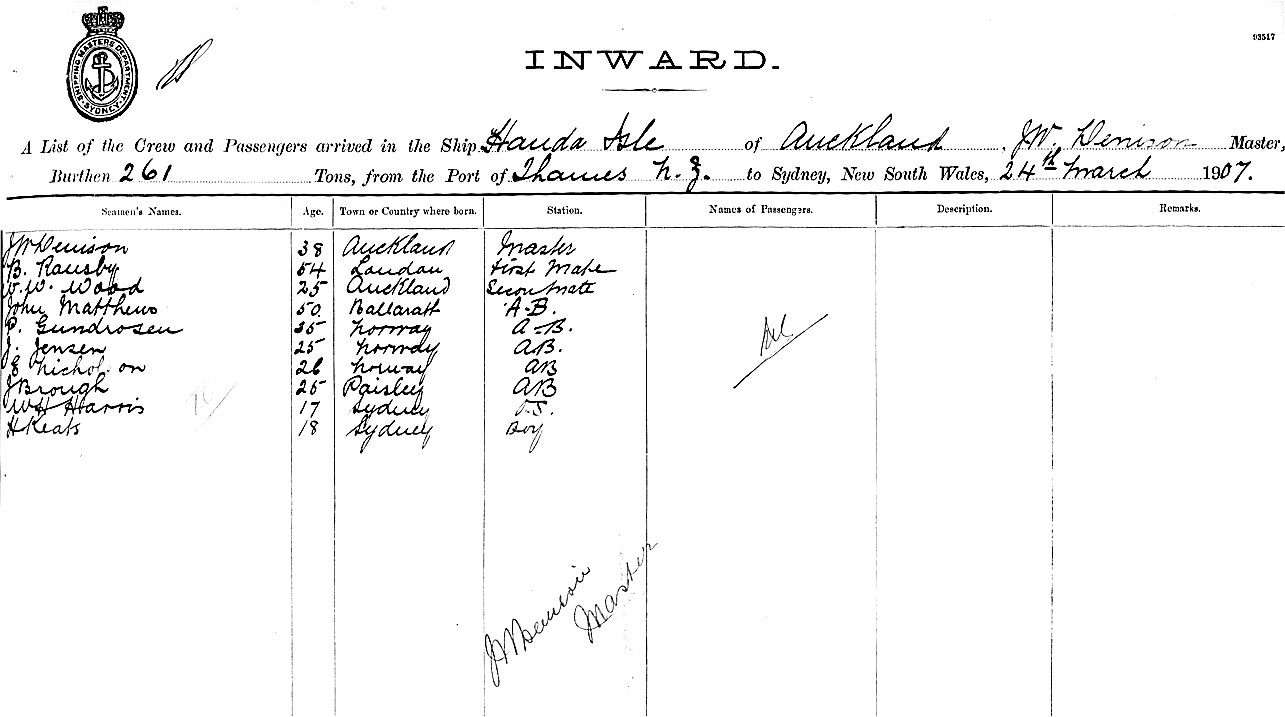 93517
SHIPPING MASTERS DEPARTMENT SYDNEY
INWARD.
A List of the Crew and Passengers arrived in the Ship Handa Isle of Auckland, JW. Denison Master,
Burthen 261 Tons, from the Port of Thames N.Z. to Sydney, New South Wales, 24th March 1907.
Seamen's Names. Age. Town or Country where born. Station. Names of Passengers. Description. Remarks.
JW Denison 38 Auckland Master
B. Ransby 54 London First Mate
W. Wood 25 Auckland Secon Mate
John Matthews 50 Ballaratt A.B.
P. Gundrosen 35 Norway A.B.
J. Jensen 25 Norway AB.
E Nichol on 26 Norway AB
J Brough 25 Paisley AB
WH Harris 17 Sydney O.S.
H Keats 18 Sydney Boy
Nil
JW Denison
Master